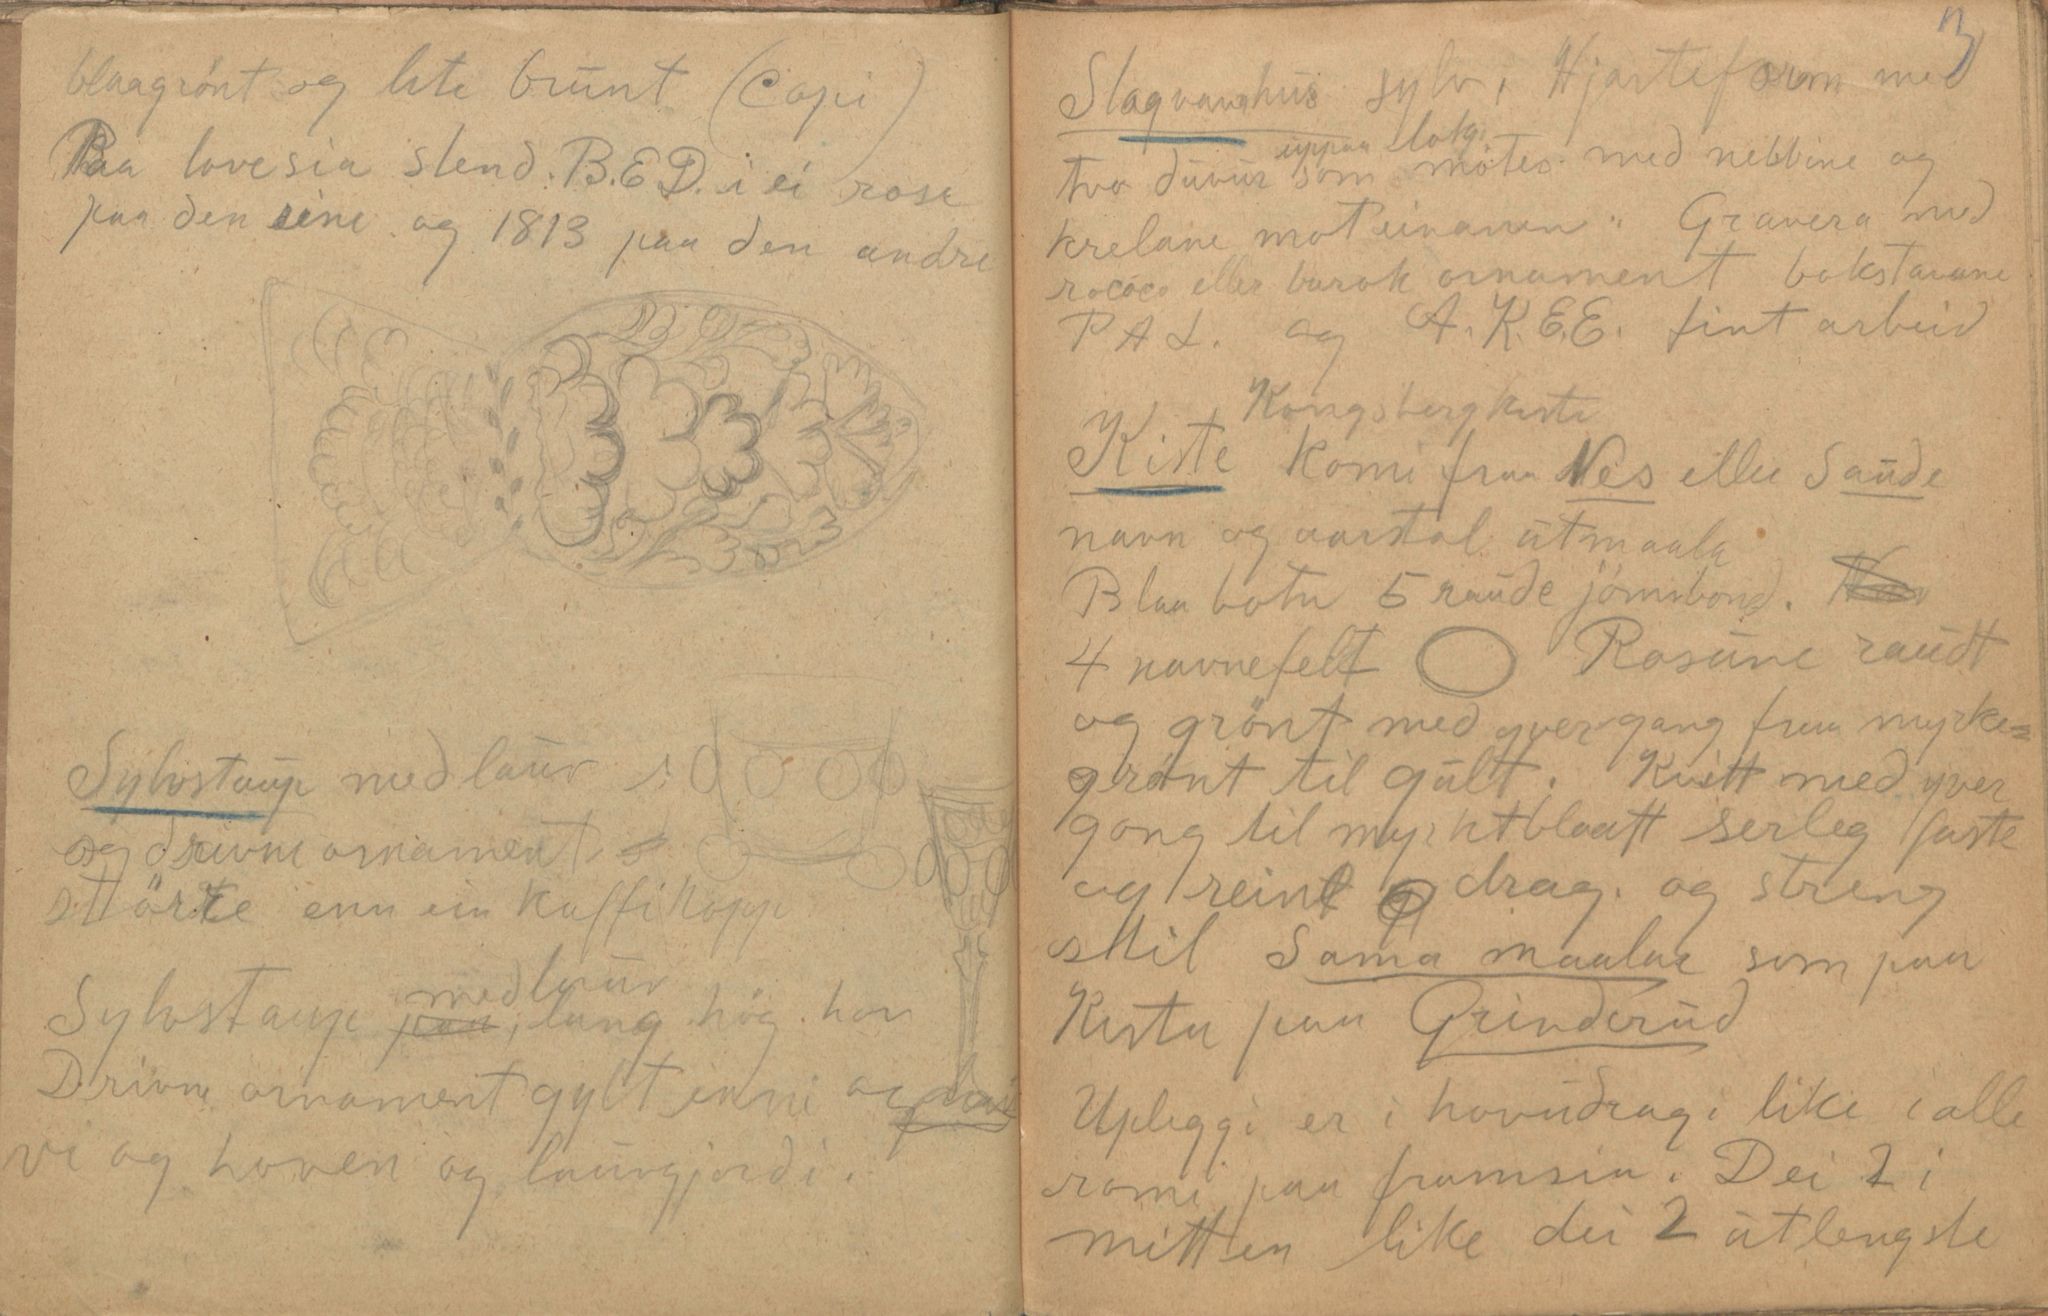 blaagrönt og lite brunt (Copi)
Paa love sia stend. B.E.D. i ei rose
paa den eine og 1813 paa den andre
Sylvstaup med lauv
og drivne ornament
större enn ein kaffikopp
med lauv
Sylvstaup paa, lang hög
Drivne ornament gylt inni og
vi og hoven og lauvgjordi.
3
Slagvanshus sylv, Hjarteform med
uppaa lok
tvo duvur som mötes med nebbine og
krelane mot einanen. Gravera med
rococo eller barok ornament bokstavane
P A L. og A.K.E.E. fint arbeid
Kongsbergkiste
Kiste komi fraa Nes eller Saude
navn og aarstal utmaala
Blaa botn 5 raude jörnbond.
4 navnefelt Rosune raudt
og grönt med yvergang fraa myrke=
grönt til gult. Kvitt med yver
gong til myrktblaatt serleg faste
og reine drag. og streng
stil Sama maalar som paa
Kista paa Grinderud
Upleggi er i hovudragi like i alle
romi paa framsia. Dei 2 i
mitten like dei 2 utlengste